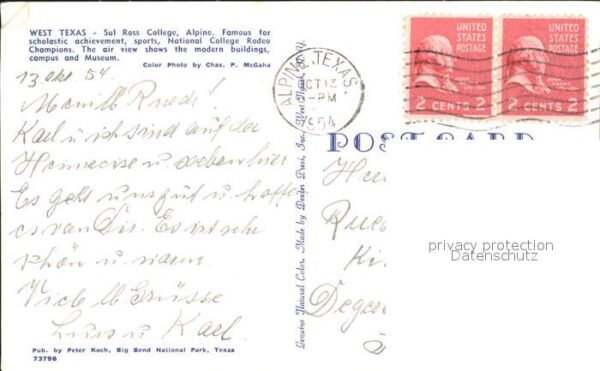 WEST TEXAS - Sul Ross College, Alpine. Famous for
scholastic achievement, sports, National College Rodeo
Champions. The air view shows the modern buildings,
campus and Museum.
Color Photo by Chas. P. McGaha
13 Okt 54
Karl u ich sind auf der
Heimreise u
Es geht uns gut u hoffe
es von Dir. Es ist sehr
schön u. warm.
Viele lb Grüsse
u Karl
Pub. by Peter Koch, Big Bend National Park, Texas
73796
Genuine Natural Color. Made by Dexter Press, Inc., West Nyack, N.Y.
ALPINE, TEXAS
OCT 13
PM
1954
UNITED
STATES
POSTAGE
2 CENTS 2
UNITED
STATES
POSTAGE
2 CENTS 2
POST CARD
privacy protection
Datenschutz